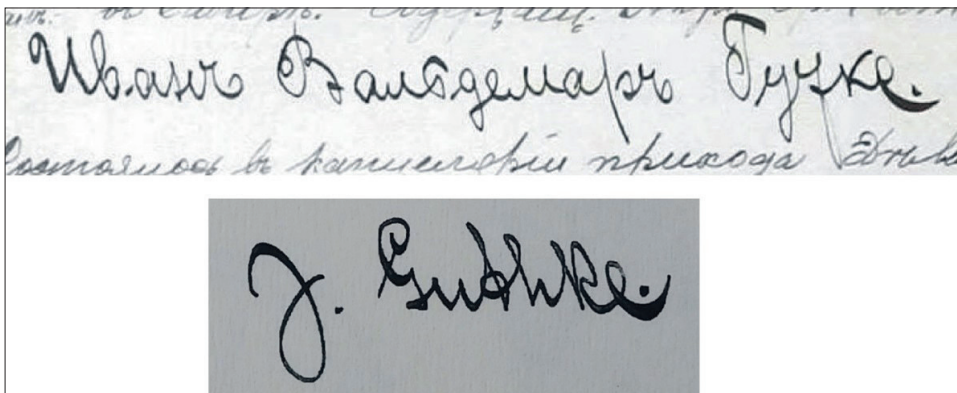 Иванъ Вальдемаръ Гутке.
состоялось въ канцеляріи прихода
J. Guthke.